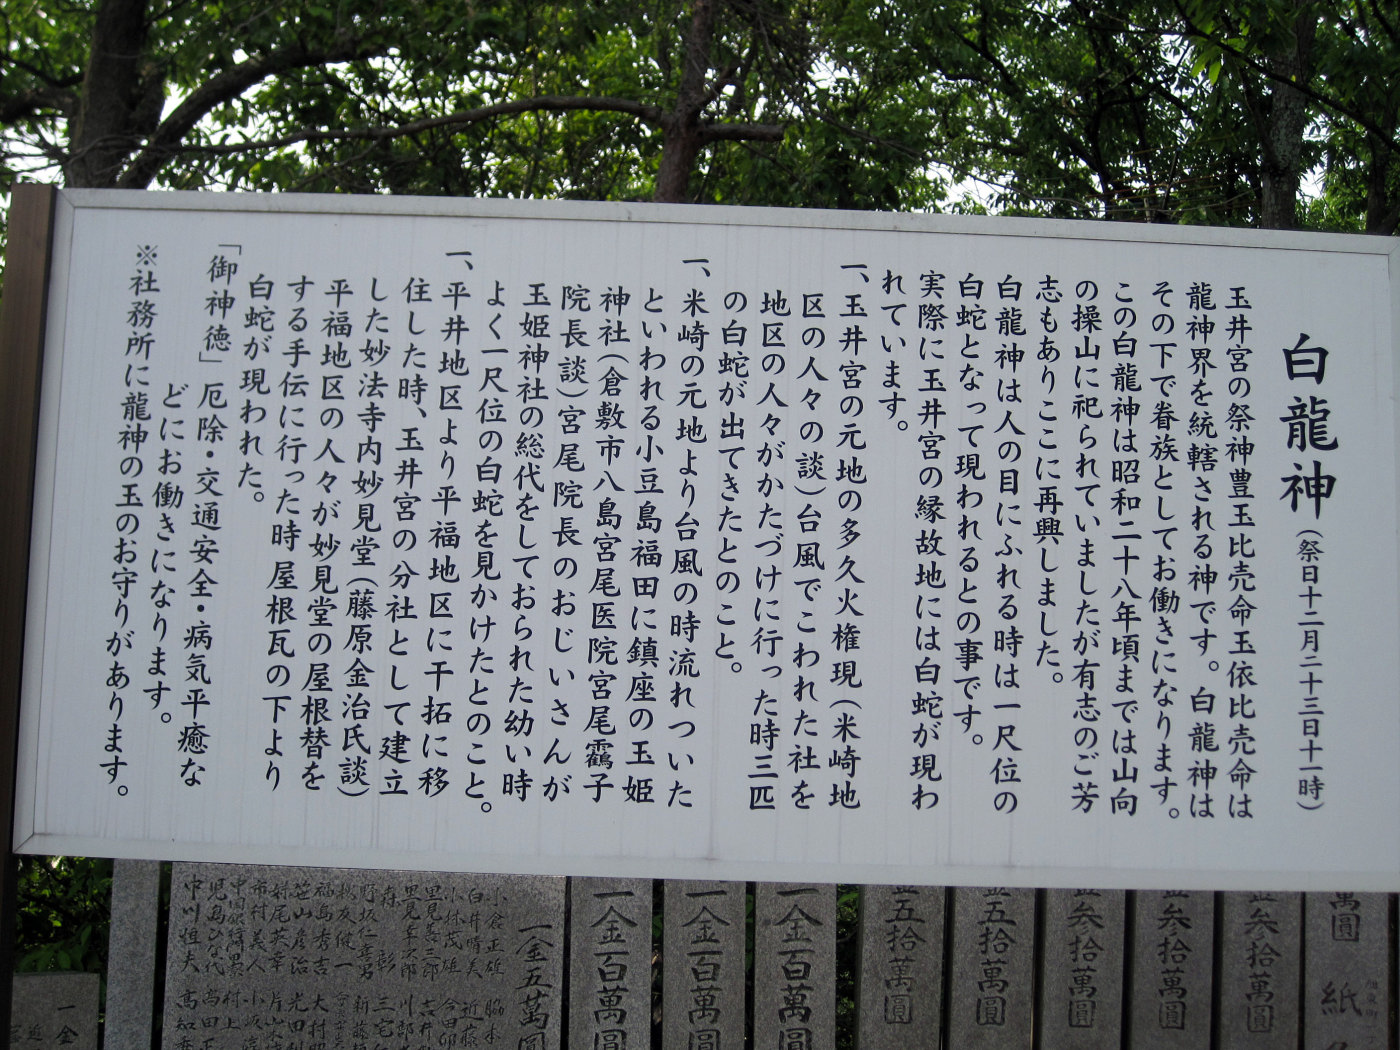 白龍神（祭日十二月二十三日十一時）
玉井宮の祭神豊玉比売命玉依比売命は
龍神界を統轄される神です。白龍神は
その下で眷族としてお働きになります。
この白龍神は昭和二十八年頃までは山向
の操山に祀られていましたが有志のご芳
志もありここに再興しました。
白龍神は人の目にふれる時は一尺位の
白蛇となって現われるとの事です。
実際に玉井宮の縁故地には白蛇が現わ
れています。
一、玉井宮の元地の多久火権現（米崎地
区の人々の談）台風でこわれた社を
地区の人々がかたづけに行った時三匹
の白蛇が出てきたとのこと。
一、米崎の元地より台風の時流れついた
といわれる小豆島福田に鎮座の玉姫
神社（倉敷市八島宮尾医院宮尾靍子
院長談）宮尾院長のおじいさんが
玉姫神社の総代をしておられた幼い時
よく一尺位の白蛇を見かけたとのこと。
一、平井地区より平福地区に干拓に移
住した時、玉井宮の分社として建立
した妙法寺内妙見堂（藤原金治氏談）
平福地区の人々が妙見堂の屋根替を
する手伝に行った時屋根瓦の下より
白蛇が現われた。
「御神徳」厄除・交通安全・病気平癒な
どにお働きになります。
※社務所に龍神の玉のお守りがあります。
萬圓 紙
金参拾萬圓
金参拾萬圓
金参拾萬圓
金五拾萬圓
金五拾萬圓
一金百萬圓
一金百萬圓
一金百萬圓
一金五萬圓
小倉正雄 脇本
白井晴美 近藤
小林茂雄 今田
里見善三郎 吉井
里見幸次郎 川郎
森 彰 三宅
野坂仁喜男 新藤
福島秀吉 大村
笹山彦治 光田
妹尾英幸 片山
市村義人 小坂
村上
児島ひな代 高田正
中川恒夫 高知
一金
近